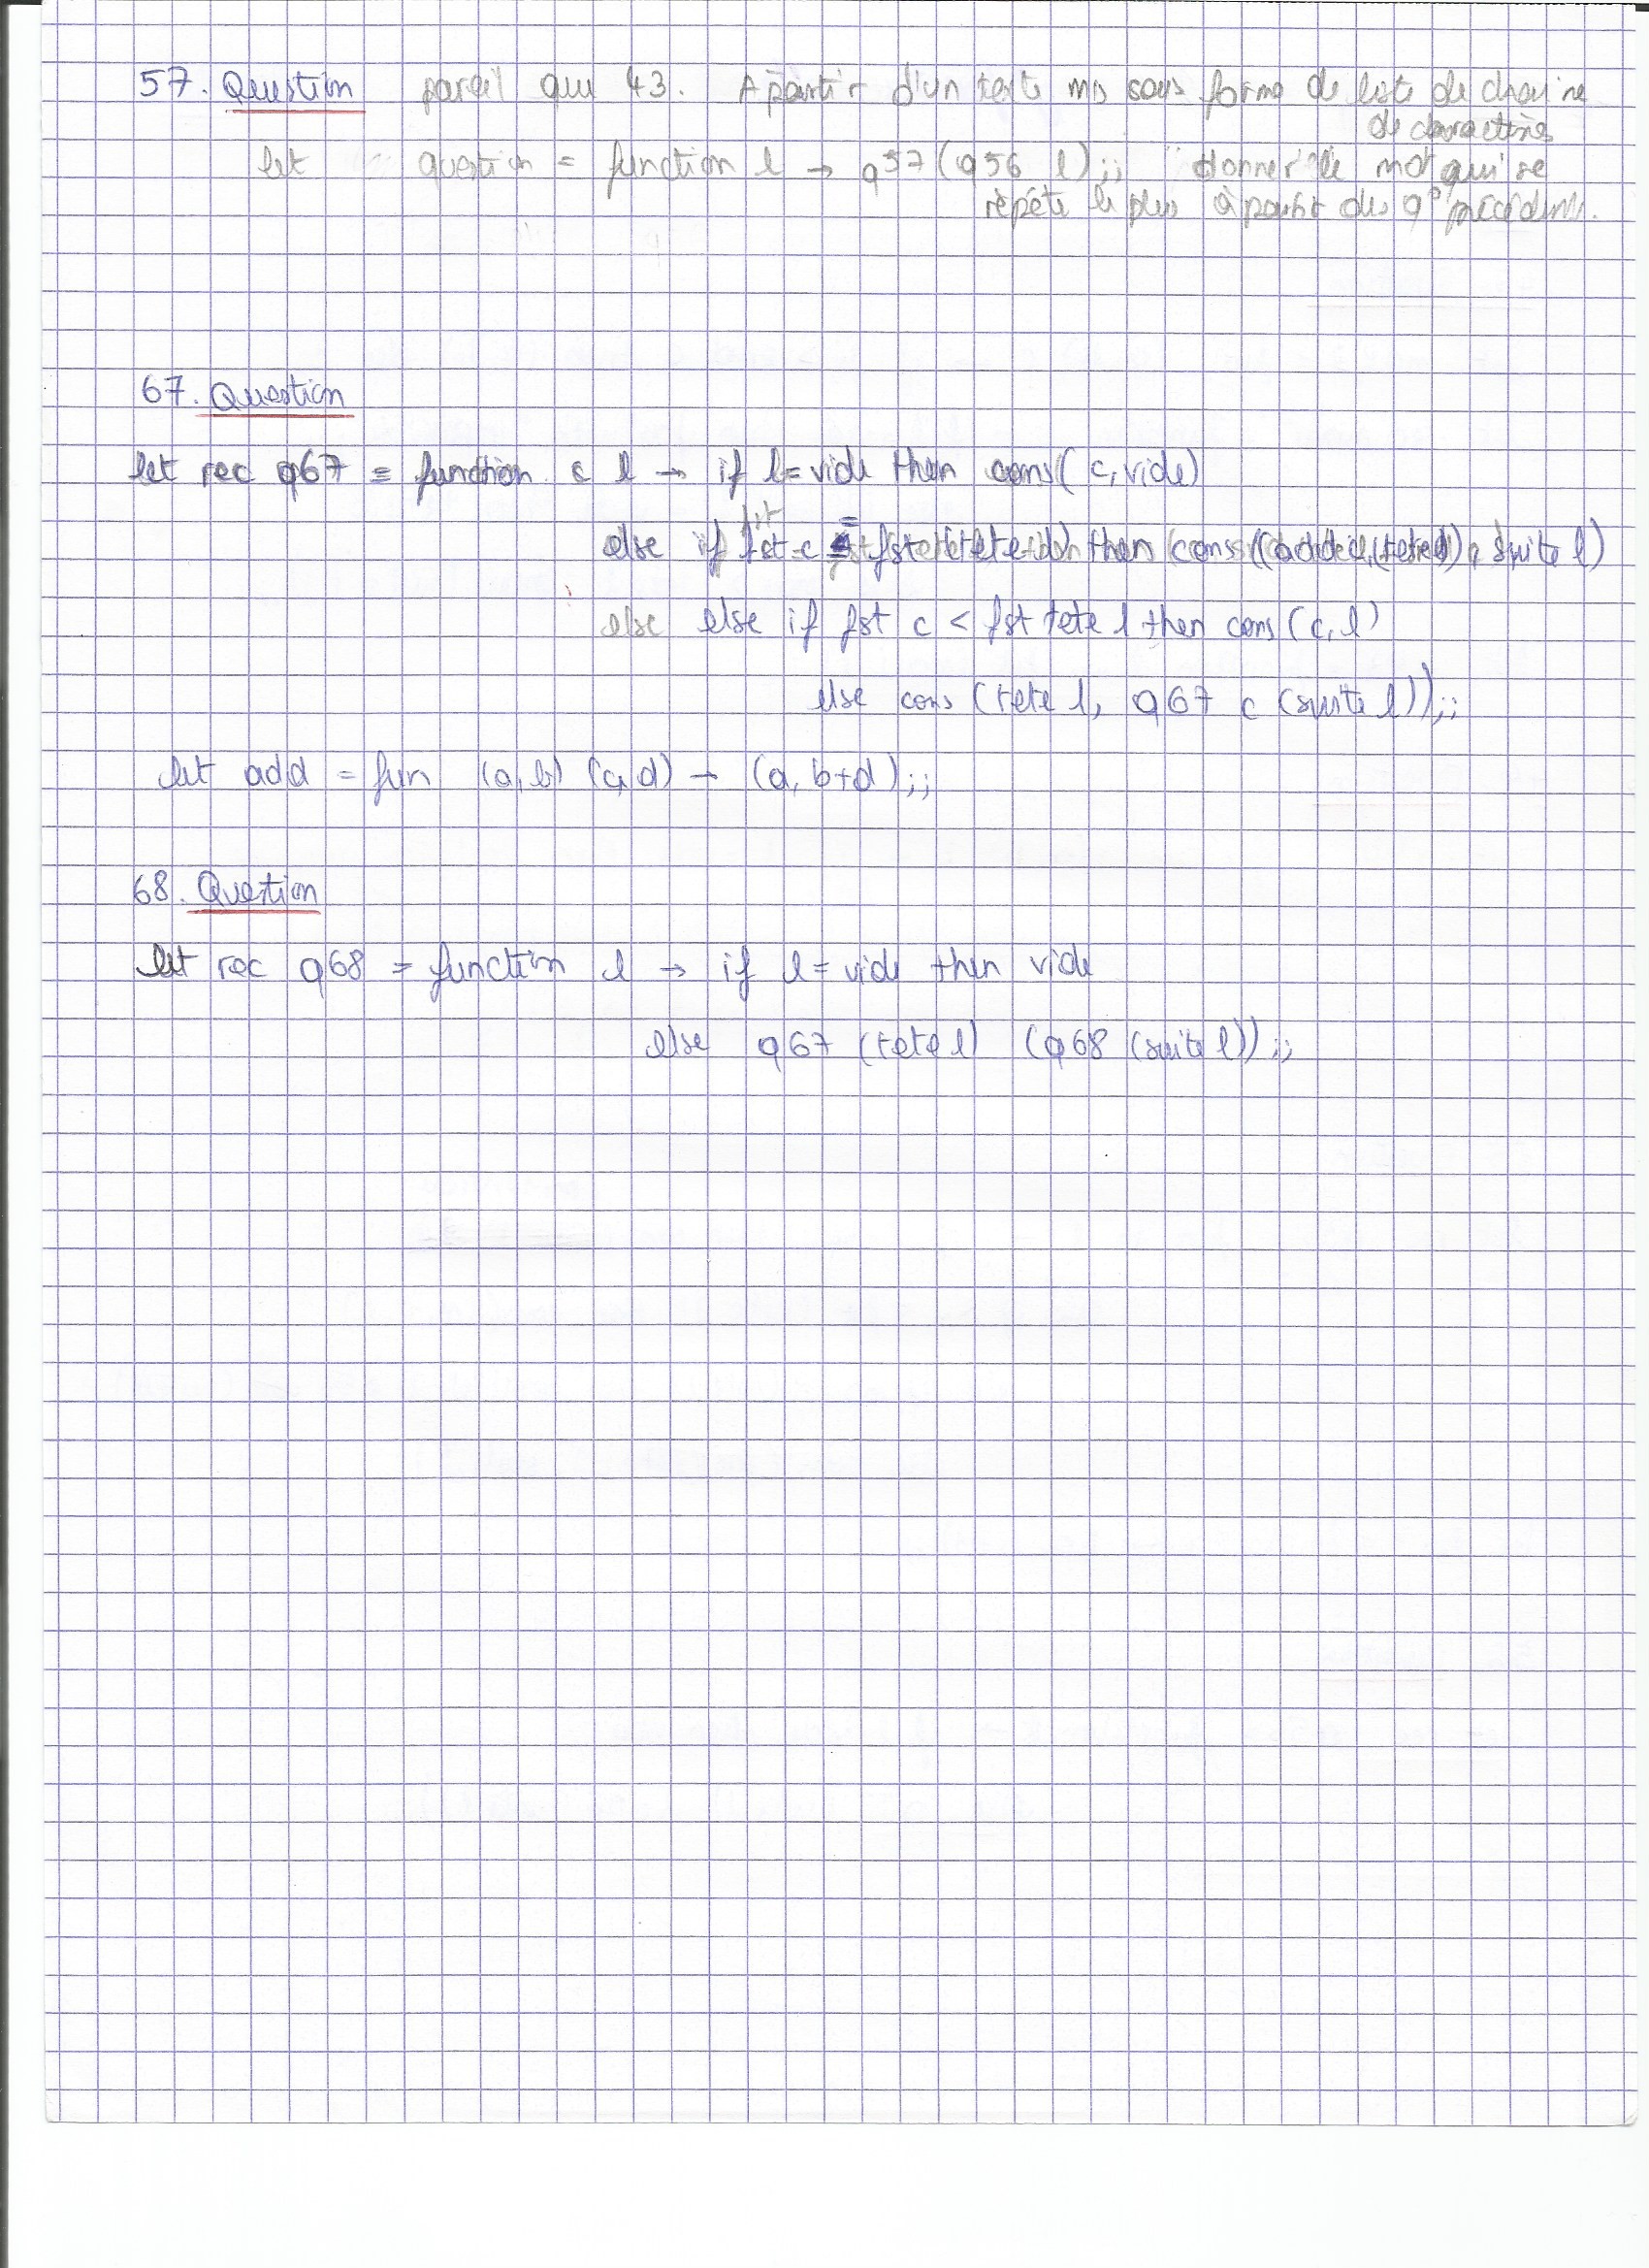 57. Question pareil que 43. A partir d'un texte mis sous forme de liste de chaine
de caractères
let question = function l → q57 (q56 l);; donner le mot qui se
répète le plus à partir des q° précédents.
67. Question
let rec q67 = function c l → if l = vide then cons( c, vide)
else if fst c = fst tete l then cons ((add c (tete l)), suite l)
else else if fst c < fst tete l then cons (c, l)
else cons (tete l, q67 c (suite l));;
let add = fun (a, b) (c, d) → (a, b+d);;
68. Question
let rec q68 = function l → if l = vide then vide
else q67 (tete l) (q68 (suite l));;